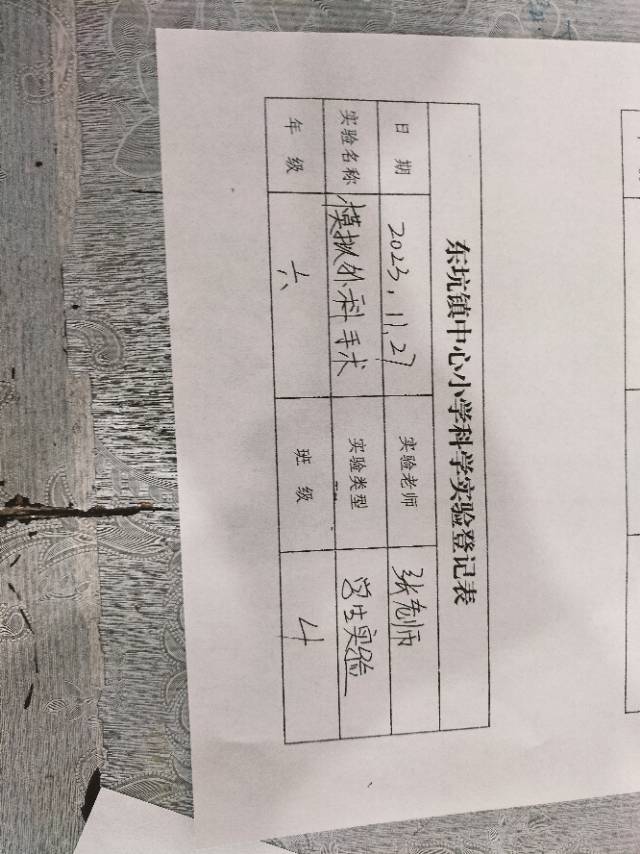 东坑镇中心小学科学实验登记表
日 期 2023.11.27 实验老师 张老师
实验名称 模拟外科手术 实验类型 学生实验
年 级 六 班 级 4